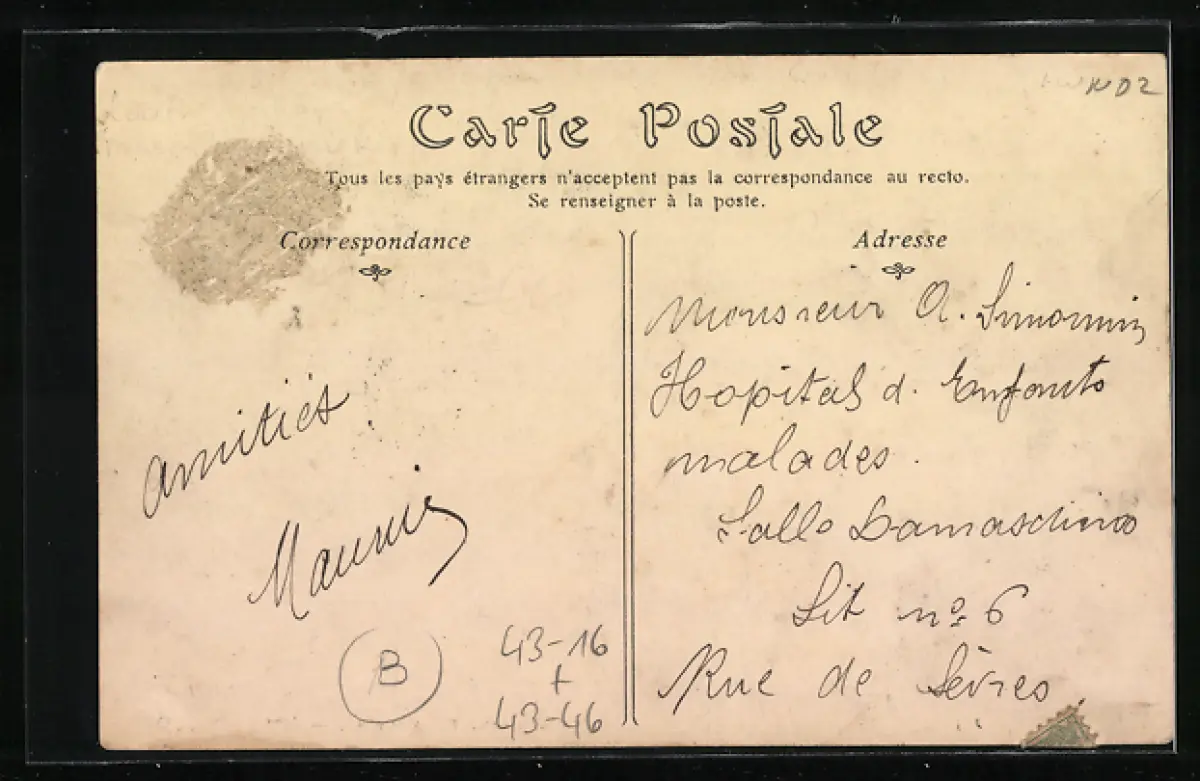 ND2
Carte Postale
Tous les pays étrangers n'acceptent pas la correspondance au recto.
Se renseigner à la poste.
Correspondance
Adresse
amitiés
B
43-16
+
43-46
Monsieur A. Simonnin
Hopital d. Enfants
malades.
Salle Damaschino
Lit nº 6
Rue de Sèvres